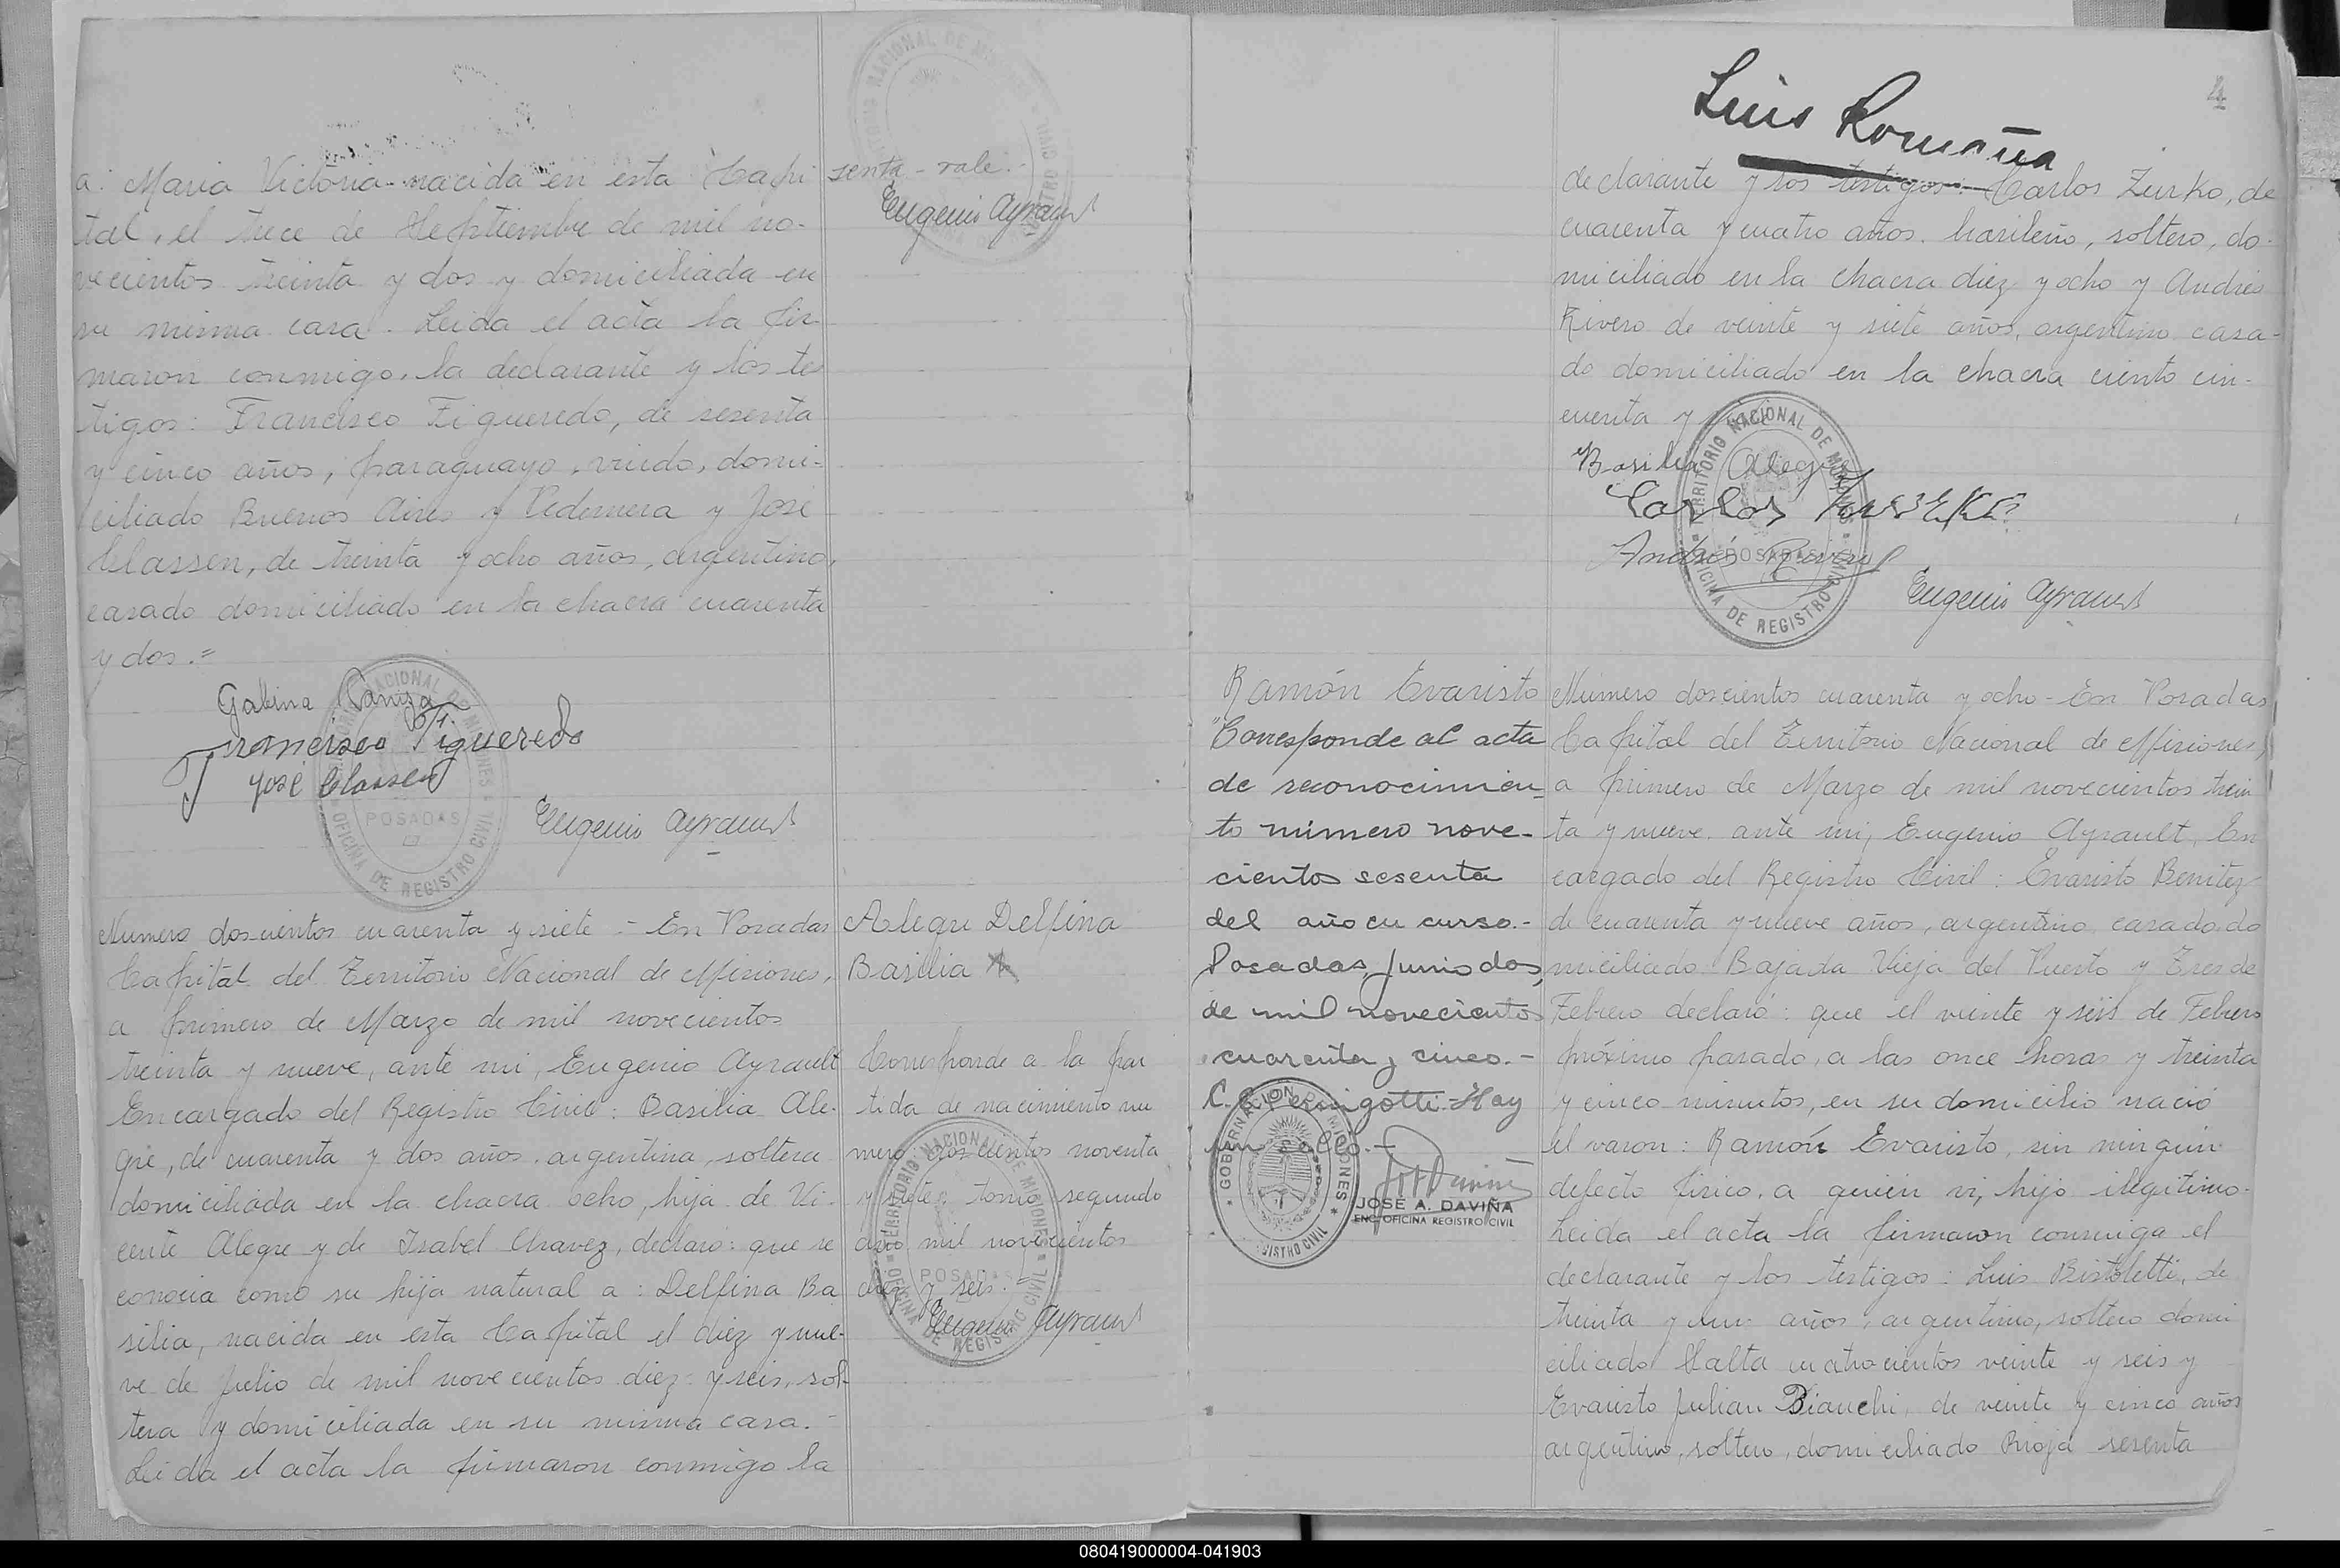 a: Maria Victoria - nacida en esta Capi
tal, el trece de Septiembre de mil no-
vecientos treinta y dos y domiciliada en
su misma casa. Leida el acta la fir-
maron conmigo, la declarante y los tes
tigos: Francisco Figueredo, de sesenta
y cinco años, paraguayo, viudo, domi-
ciliado Buenos Aires y Pedernera y José
Classen, de treinta y ocho años, argentino,
casado domiciliado en la chacra cuarenta
y dos.=
Gabina
Francisco Figueredo
José Classen
Eugenio Ayrault
TERRITORIO NACIONAL DE MISIONES
POSADAS
OFICINA DE REGISTRO CIVIL
senta - vale.
Eugenio Ayrault
Numero doscientos cuarenta y siete - En Posadas
Capital del Territorio Nacional de Misiones,
a primero de Marzo de mil novecientos
treinta y nueve, ante mi, Eugenio Ayrault
Encargado del Registro Civil: Basilia Ale-
gre, de cuarenta y dos años, argentina, soltera
domiciliada en la chacra ocho, hija de Vi-
cente Alegre y de Isabel Chavez, declaro: que re
conocia como su hija natural a: Delfina Ba
silia, nacida en esta Capital el diez y nue-
ve de Julio de mil novecientos diez y seis, sol-
tera y domiciliada en su misma casa.-
Leida el acta la firmaron conmigo la
Alegre Delfina
Basilia
Corresponde a la par
tida de nacimiento nu
mero doscientos noventa
y siete, tomo segundo
año mil novecientos
diez y seis.
Eugenio Ayrault
TERRITORIO NACIONAL DE MISIONES
POSADAS
OFICINA DE REGISTRO CIVIL
4
Luis Romaña
declarante y los testigos: Carlos Zurko, de
cuarenta y cuatro años, brasileño, soltero, do-
miciliado en la chacra diez y ocho y Andrés
Rivero de veinte y siete años, argentino casa-
do domiciliado en la chacra ciento cin-
cuenta y
Basilia Alegre
Carlos
Andrés Rivero
Eugenio Ayrault
TERRITORIO NACIONAL DE MISIONES
POSADAS
OFICINA DE REGISTRO CIVIL
Ramón Evaristo
"Corresponde al acta
de reconocimien-
to número nove-
cientos sesenta
del año en curso.-
Posadas, Junio dos,
de mil novecientos
cuarenta y cinco.-
C. R. Peringotti - Hay
un sello.-
GOBERNACION MISIONES
REGISTRO CIVIL
JOSE A. DAVIÑA
ENC. OFICINA REGISTRO CIVIL
Número doscientos cuarenta y ocho - En Posadas
Capital del Territorio Nacional de Misiones,
a primero de Marzo de mil novecientos trein
ta y nueve, ante mi, Eugenio Ayrault, En
cargado del Registro Civil: Evaristo Benitez
de cuarenta y nueve años, argentino, casado, do
miciliado Bajada Vieja del Puerto y Tres de
Febrero declaró: que el veinte y seis de Febrero
próximo pasado, a las once horas y treinta
y cinco minutos, en su domicilio nació
el varon: Ramón Evaristo, sin ningún
defecto fisico, a quien vi, hijo ilegitimo.
Leida el acta la firmaron conmigo el
declarante y los testigos: Luis Bistoletti, de
treinta y un años, argentino, soltero domi
ciliado Salta cuatrocientos veinte y seis y
Evaristo Julian Bianchi, de veinte y cinco años
argentino, soltero, domiciliado Rioja sesenta
080419000004-041903